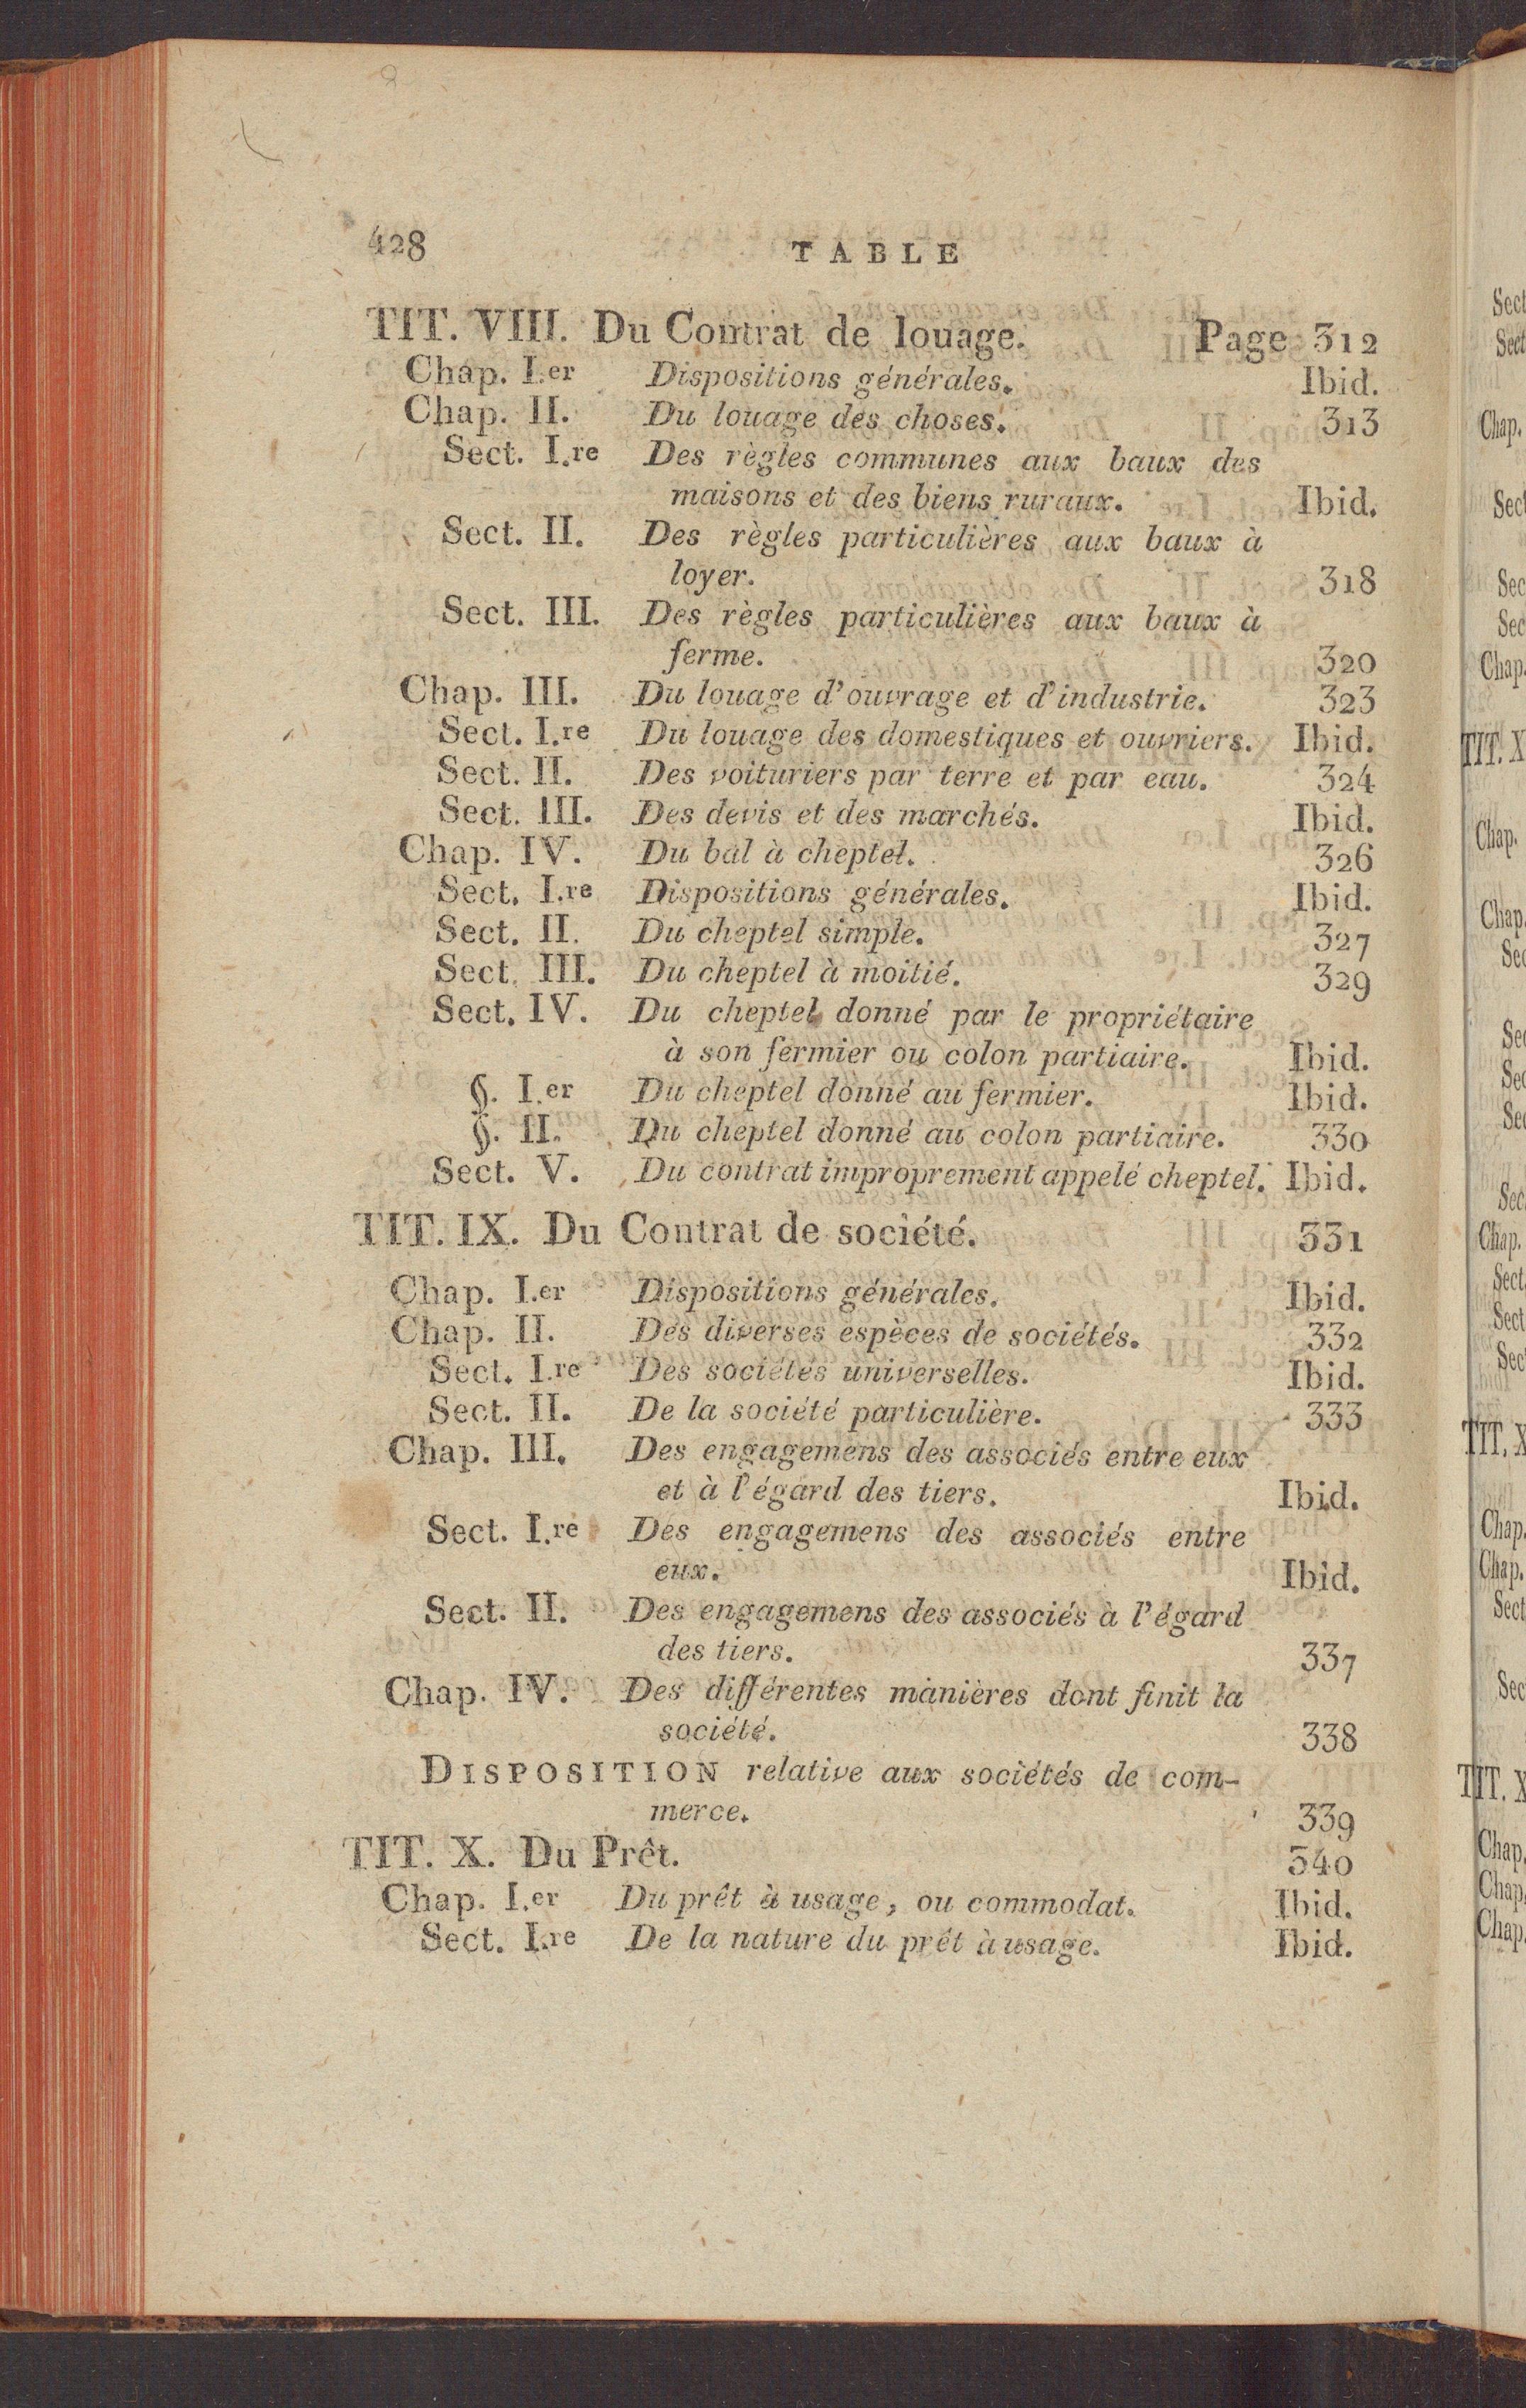 428
TABLE
TIT. VIII. Du Contrat de louage. Page 312
Chap. I.er Dispositions générales. Ibid.
Chap. II. Du louage des choses. 313
Sect. I.re Des règles communes aux baux des
maisons et des biens ruraux. Ibid.
Sect. II. Des règles particulières aux baux à
loyer. 318
Sect. III. Des règles particulières aux baux à
ferme. 320
Chap. III. Du louage d'ouvrage et d'industrie. 323
Sect. I.re Du louage des domestiques et ouvriers. Ibid.
Sect. II. Des voituriers par terre et par eau. 324
Sect. III. Des devis et des marchés. Ibid.
Chap. IV. Du bal à cheptel. 326
Sect. I.re Dispositions générales. Ibid.
Sect. II. Du cheptel simple. 327
Sect. III. Du cheptel à moitié. 329
Sect. IV. Du cheptel donné par le propriétaire
à son fermier ou colon partiaire. Ibid.
§. I.er Du cheptel donné au fermier. Ibid.
§. II. Du cheptel donné au colon partiaire. 330
Sect. V. Du contrat improprement appelé cheptel. Ibid.
TIT. IX. Du Contrat de société. 331
Chap. I.er Dispositions générales. Ibid.
Chap. II. Des diverses espèces de sociétés. 332
Sect. I.re Des sociétés universelles. Ibid.
Sect. II. De la société particulière. 333
Chap. III. Des engagemens des associés entre eux
et à l'égard des tiers. Ibid.
Sect. I.re Des engagemens des associés entre
eux. Ibid.
Sect. II. Des engagemens des associés à l'égard
des tiers. 337
Chap. IV. Des différentes manières dont finit la
société. 338
DISPOSITION relative aux sociétés de com-
merce. 339
TIT. X. Du Prêt. 340
Chap. I.er Du prêt à usage, ou commodat. Ibid.
Sect. I.re De la nature du prêt à usage. Ibid.